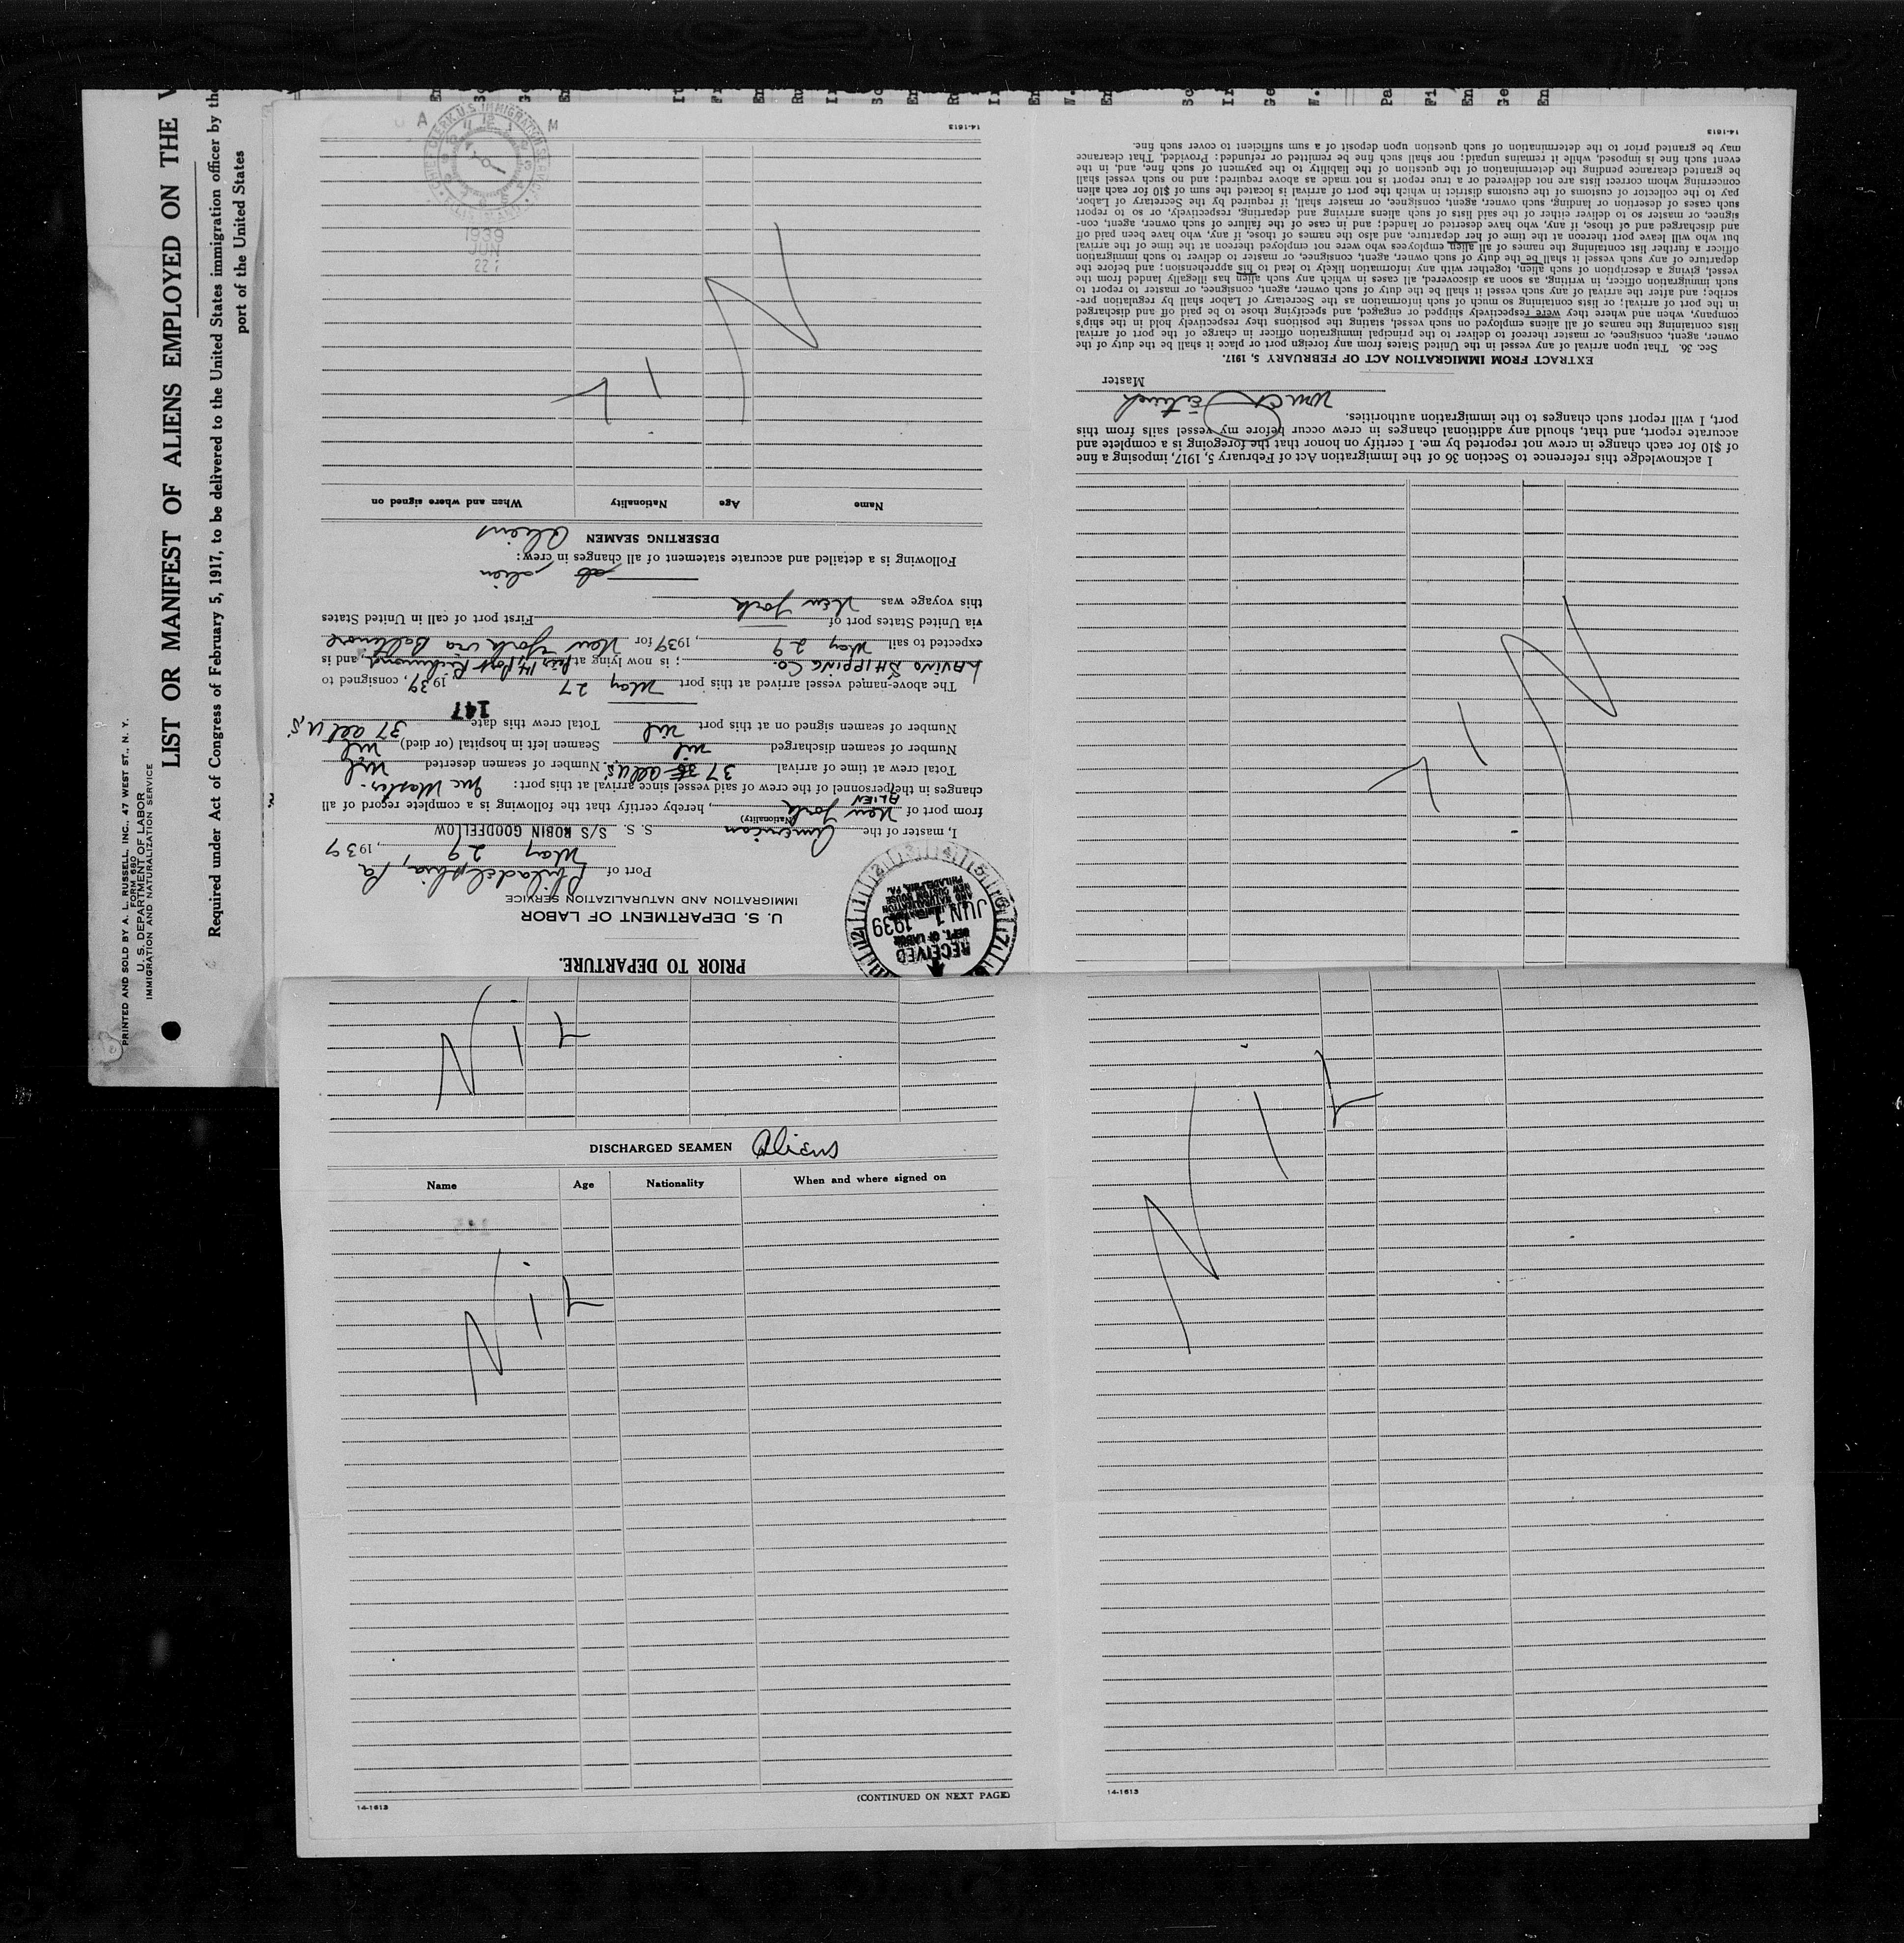 PRINTED AND SOLD BY A. L. RUSSELL, INC., 47 WEST ST., N. Y.
FORM 680
U. S. DEPARTMENT OF LABOR
IMMIGRATION AND NATURALIZATION SERVICE
LIST OR MANIFEST OF ALIENS EMPLOYED ON THE
Required under Act of Congress of February 5, 1917, to be delivered to the United States immigration officer by the
port of the United States
PRIOR TO DEPARTURE.
U. S. DEPARTMENT OF LABOR
IMMIGRATION AND NATURALIZATION SERVICE
RECEIVED
DEPT. OF LABOR
JUN 1 1939
AND NATURALIZATION
NEW CUSTOM HOUSE
PHILADELPHIA, PA.
Port of Philadelphia, Pa
May 29, 1939
I, master of the American S. S. S/S ROBIN GOODFELLOW
(Nationality)
from port of New York, hereby certify that the following is a complete record of all
ALIEN
changes in the personnel of the crew of said vessel since arrival at this port: Inc Master.
Total crew at time of arrival 37 36 all U.S. Number of seamen deserted nil
Number of seamen discharged nil Seamen left in hospital (or died) nil
Number of seamen signed on at this port nil Total crew this date 37 all U.S.
147
The above-named vessel arrived at this port May 27 1939, consigned to
LAVINO SHIPPING CO.; is now lying at Pier 14 Port Richmond, and is
expected to sail May 29, 1939 for New York via Baltimore
via United States port of First port of call in United States
this voyage was New York
alien
Following is a detailed and accurate statement of all changes in crew:
DESERTING SEAMEN Aliens
Name Age Nationality When and where signed on
Nil
CHIEF CLERK U.S. IMMIGRATION SERVICE
A M
1939
JUN
22
14-1613
Nil
I acknowledge this reference to Section 36 of the Immigration Act of February 5, 1917, imposing a fine
of $10 for each change in crew not reported by me. I certify on honor that the foregoing is a complete and
accurate report, and that, should any additional changes in crew occur before my vessel sails from this
port, I will report such changes to the immigration authorities.
Master
EXTRACT FROM IMMIGRATION ACT OF FEBRUARY 5, 1917.
Sec. 36. That upon arrival of any vessel in the United States from any foreign port or place it shall be the duty of the
owner, agent, consignee, or master thereof to deliver to the principal immigration officer in charge of the port of arrival
lists containing the names of all aliens employed on such vessel, stating the positions they respectively hold in the ship's
company, when and where they were respectively shipped or engaged, and specifying those to be paid off and discharged
in the port of arrival; or lists containing so much of such information as the Secretary of Labor shall by regulation pre-
scribe; and after the arrival of any such vessel it shall be the duty of such owner, agent, consignee, or master to report to
such immigration officer, in writing, as soon as discovered, all cases in which any such alien has illegally landed from the
vessel, giving a description of such alien, together with any information likely to lead to his apprehension; and before the
departure of any such vessel it shall be the duty of such owner, agent, consignee, or master to deliver to such immigration
officer a further list containing the names of all alien employees who were not employed thereon at the time of the arrival
but who will leave port thereon at the time of her departure, and also the names of those, if any, who have been paid off
and discharged and of those, if any, who have deserted or landed; and in case of the failure of such owner, agent, con-
signee, or master so to deliver either of the said lists of such aliens arriving and departing, respectively, or so to report
such cases of desertion or landing, such owner, agent, consignee, or master, shall, if required by the Secretary of Labor,
pay to the collector of customs of the customs district in which the port of arrival is located the sum of $10 for each alien
concerning whom correct lists are not delivered or a true report is not made as above required; and no such vessel shall
be granted clearance pending the determination of the question of the liability to the payment of such fine, and, in the
event such fine is imposed, while it remains unpaid; nor shall such fine be remitted or refunded: Provided, That clearance
may be granted prior to the determination of such question upon deposit of a sum sufficient to cover such fine.
14-1613
Nil
DISCHARGED SEAMEN Aliens
Name Age Nationality When and where signed on
Nil
(CONTINUED ON NEXT PAGE)
14-1613
Nil
14-1613